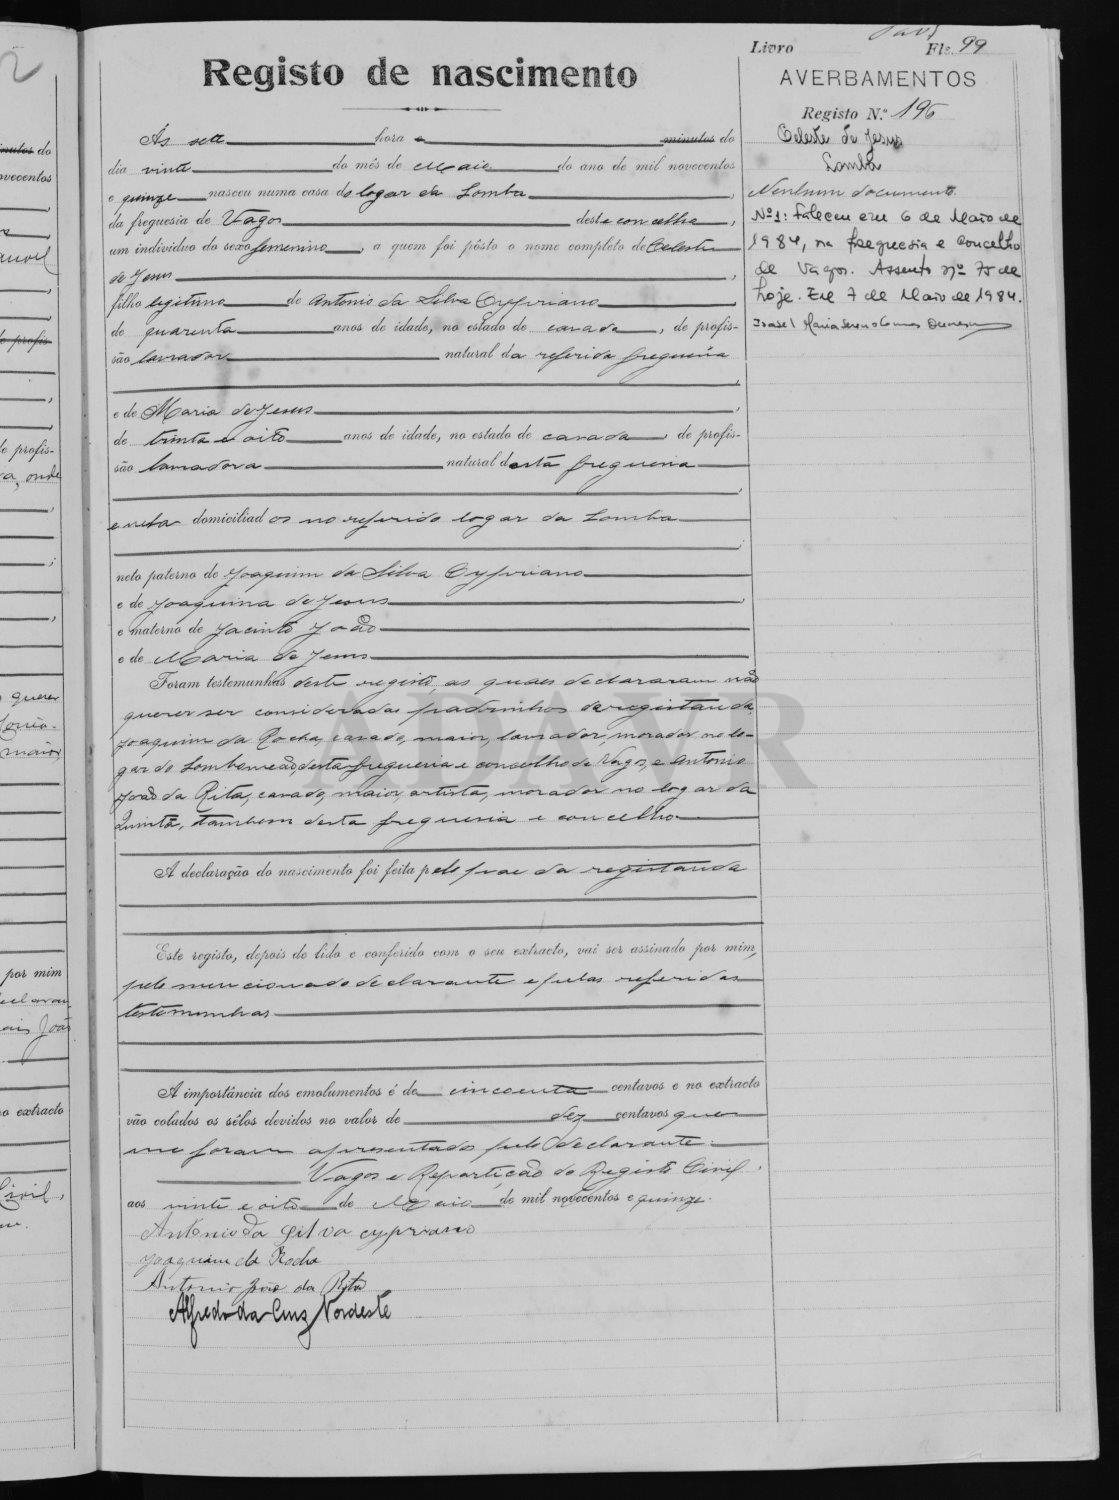 Livro Fls. 99
Registo de nascimento
AVERBAMENTOS
Registo N.º 196
Celeste de Jesus
Lomba
Nenhum documento.
Nº1: Faleceu em 6 de Maio de
1984, na freguesia e concelho
de Vagos. Assento nº 75 de
hoje. Em 7 de Maio de 1984.
Isabel Maria
Ás sete hora e minutos do
dia vinte do mês de Maio do ano de mil novecentos
e quinze nasceu numa casa do logar da Lomba,
da freguesia de Vagos deste concelho,
um individuo do sexo femenino, a quem foi pôsto o nome completo de Celeste
de Jesus,
filho legitimo de Antonio da Silva Cypriano,
de quarenta anos de idade, no estado de casado, de profis-
são lavrador natural da referida freguesia
,
e de Maria de Jesus,
de trinta e oito anos de idade, no estado de casada, de profis-
são lavradora natural desta freguesia
,
e neta domiciliados no referido logar da Lomba
;
neto paterno de Joaquim da Silva Cypriano
e de Joaquina de Jesus,
e materno de Jacinto João
e de Maria de Jesus
Foram testemunhas deste registo, as quaes declararam não
querer ser consideradas padrinhos da registanda,
Joaquim da Rocha, casado, maior, lavrador, morador no lo-
gar do Lombomeão, desta freguesia e concelho de Vagos, e Antonio
João da Rita, casado, maior, artista, morador no logar da
Quintã, tambem desta freguesia e concelho
A declaração do nascimento foi feita pelo pae da registanda
Este registo, depois de lido e conferido com o seu extracto, vai ser assinado por mim,
pelo mencionado declarante e pelas referidas
testemunhas
A importância dos emolumentos é de cincoenta centavos e no extracto
vão colados os sêlos devidos no valor de dez centavos que
me foram apresentados pelo declarante.
Vagos e Repartição do Registo Civil,
aos vinte e oito de Maio de mil novecentos e quinze.
Antonio da Silva cypriano
Joaquim da Rocha
Antonio João da Rita
Alfredo da Cruz Nordeste
ADAVR